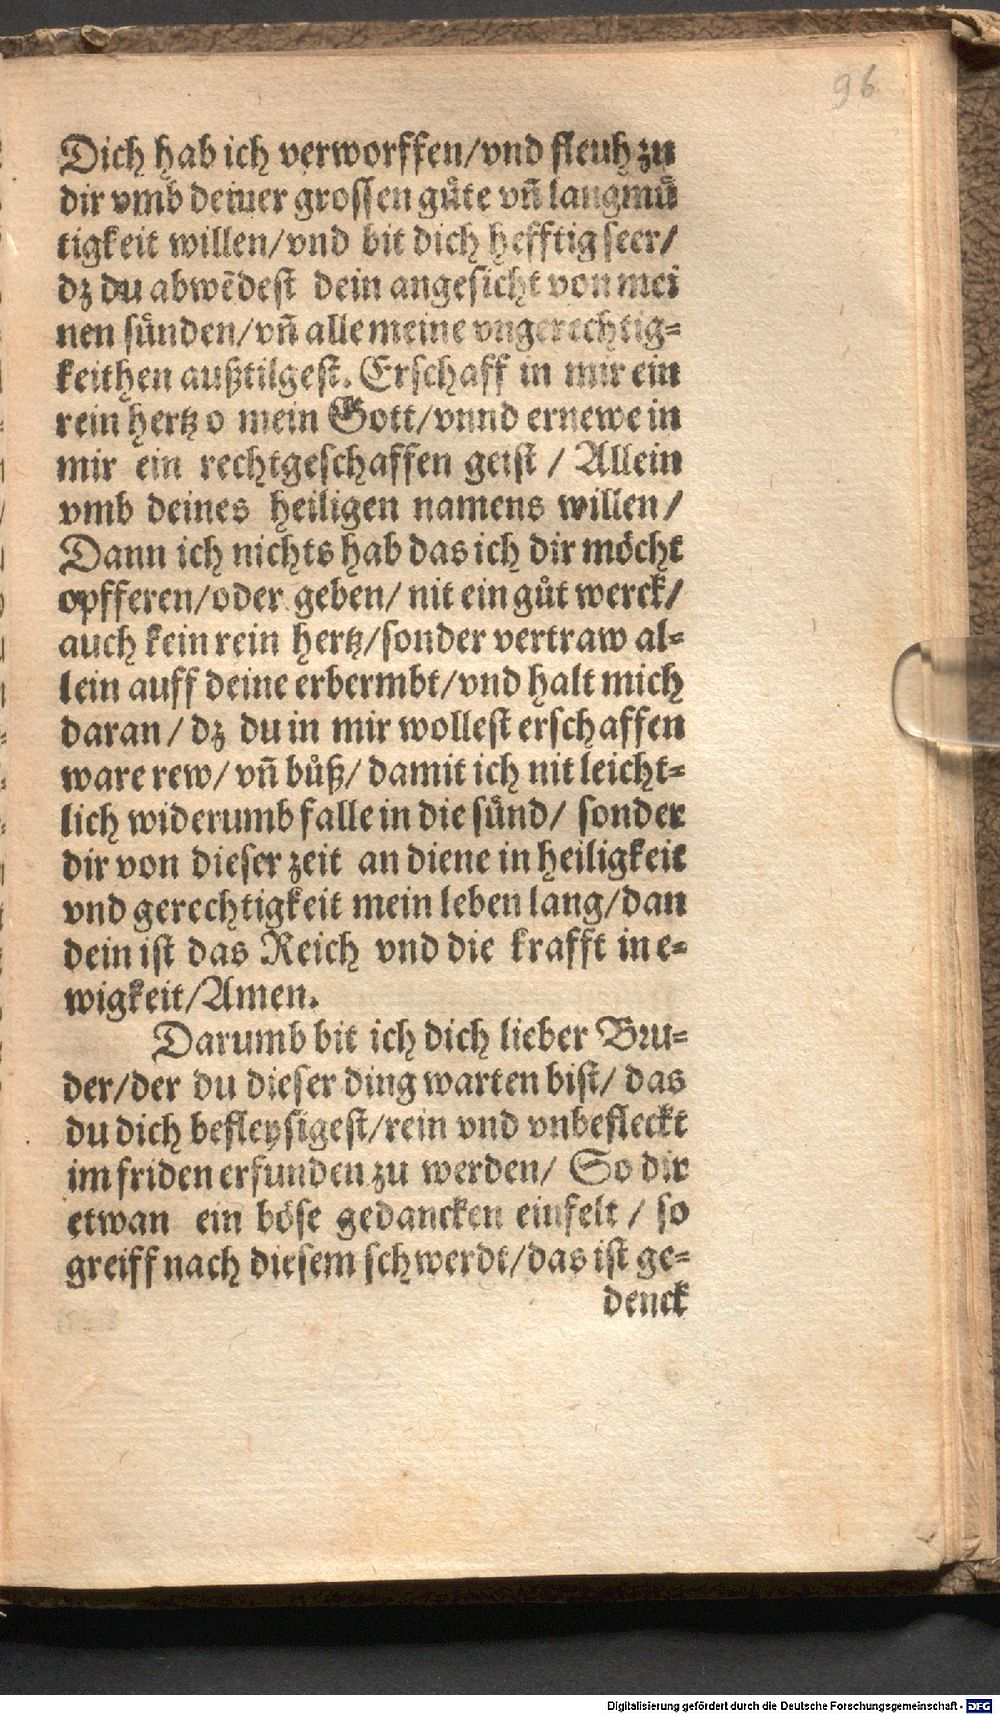 96
Dich hab ich verworffen/vnd fleuh zu
dir vmb deiner grossen guͤte vñ langmuͤ
tigkeit willen/vnd bit dich hefftig seer/
dz du abwẽdest dein angesicht von mei
nen suͤnden/vñ alle meine vngerechtig⸗
keithen außtilgest. Erschaff in mir ein
rein hertz o mein Gott/vnnd ernewe in
mir ein rechtgeschaffen geist / Allein
vmb deines heiligen namens willen/
Dann ich nichts hab das ich dir moͤcht
opfferen/oder geben/ nit ein guͦt werck/
auch kein rein hertz/sonder vertraw al⸗
lein auff deine erbermbt/vnd halt mich
daran/ dz du in mir wollest erschaffen
ware rew/ vñ buͦß/ damit ich nit leicht⸗
lich widerumb falle in die suͤnd/ sonder
dir von dieser zeit an diene in heiligkeit
vnd gerechtigkeit mein leben lang/dan
dein ist das Reich vnd die krafft in e⸗
wigkeit/Amen.
Darumb bit ich dich lieber Bru⸗
der/der du dieser ding warten bist/ das
du dich befleysigest/rein vnd vnbefleckt
im friden erfunden zu werden/ So dir
etwan ein boͤse gedancken einfelt / so
greiff nach diesem schwerdt/das ist ge⸗
denck
Digitalisierung gefördert durch die Deutsche Forschungsgemeinschaft - DFG